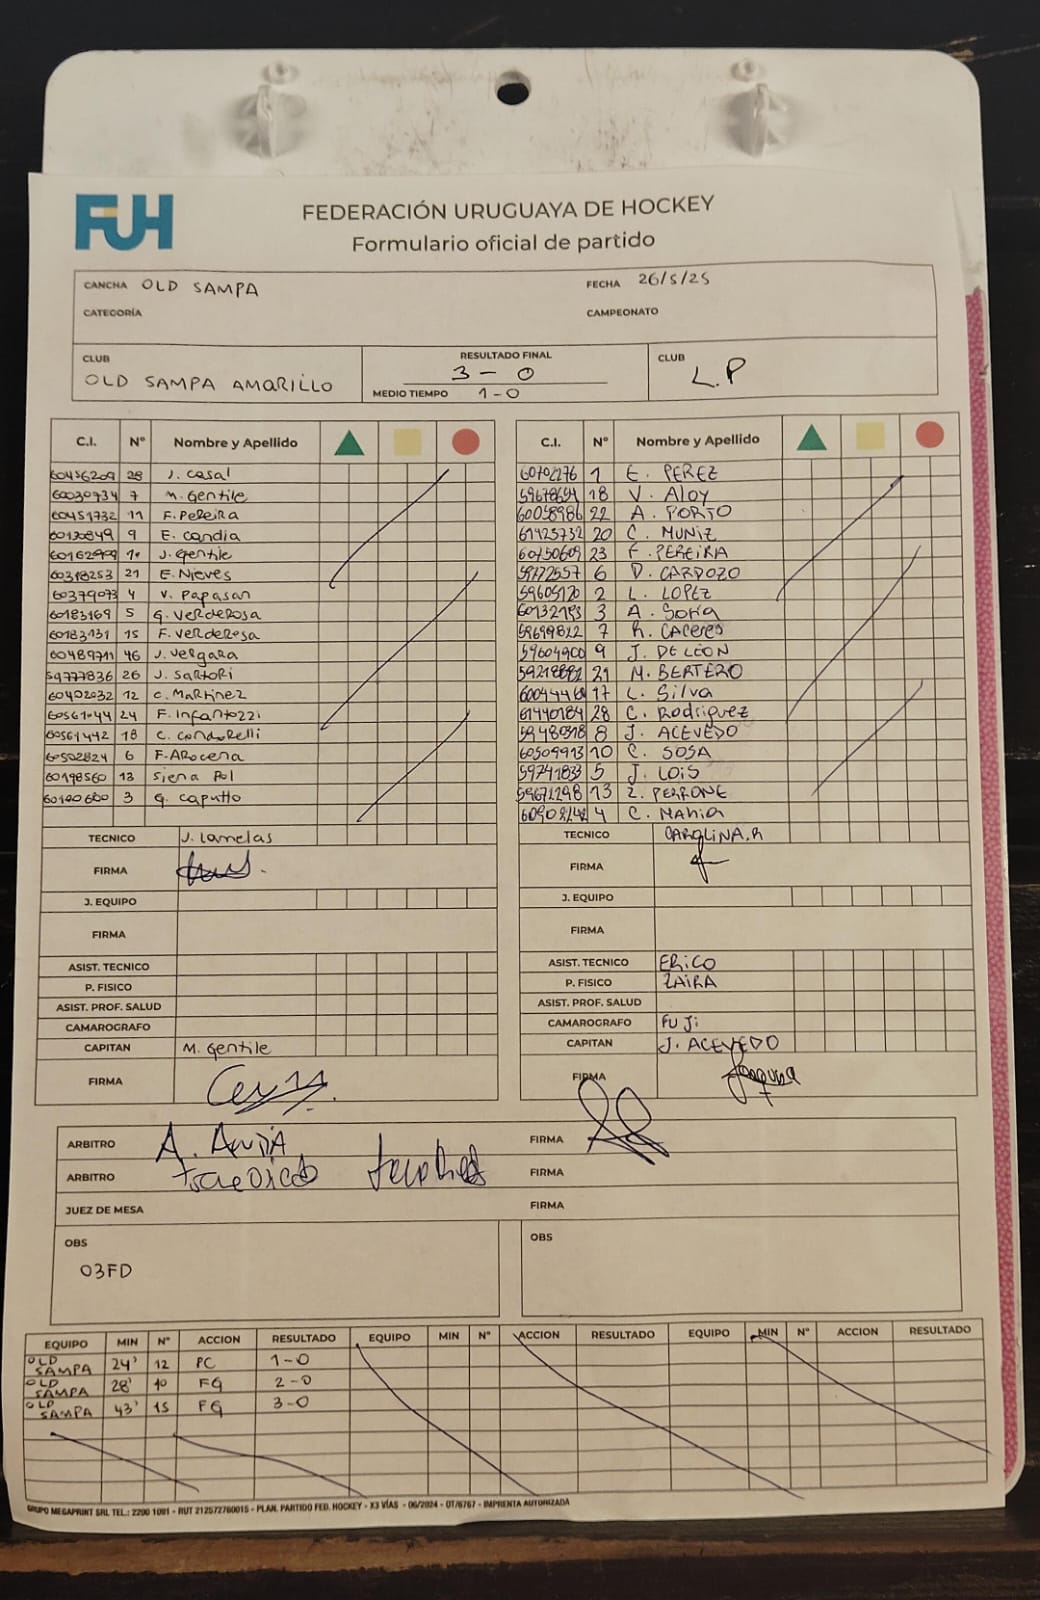 FUH
FEDERACIÓN URUGUAYA DE HOCKEY
Formulario oficial de partido
CANCHA OLD SAMPA FECHA 26/5/25
CATEGORÍA CAMPEONATO
CLUB OLD SAMPA AMARILLO
RESULTADO FINAL
3 - 0
MEDIO TIEMPO 1-0
CLUB L.P
C.I. Nº Nombre y Apellido
60456209 28 J. Casal
60030734 7 M. Gentile
60451732 11 F. Pereira
60130849 9 E. Candia
60162999 10 J. Gentile
60318253 21 E. Nieves
60379073 4 V. Papasan
60183169 5 G. Verderosa
60183131 15 F. Verderosa
60489711 46 J. Vergara
59777836 26 J. Sartori
60402032 12 C. Martinez
60561044 24 F. Infantozzi
60561442 18 C. Condorelli
60502824 6 F. Arocena
60198560 13 Siena Pol
60100600 3 G. Caputto
TECNICO J. Lamelas
FIRMA
J. EQUIPO
FIRMA
ASIST. TECNICO
P. FISICO
ASIST. PROF. SALUD
CAMAROGRAFO
CAPITAN M. Gentile
FIRMA
C.I. Nº Nombre y Apellido
60702276 1 E. PEREZ
59678694 18 V. Aloy
60058986 22 A. PORTO
61425732 20 C. MUNIZ
60750609 23 F. PEREIRA
59772557 6 D. CARDOZO
59605120 2 L. LOPEZ
60132193 3 A. Soria
59699822 7 R. CACERES
59604900 9 J. DE LEON
59218882 21 M. BERTERO
60044469 17 L. Silva
61440184 28 C. Rodriguez
59480318 8 J. ACEVEDO
60509913 10 C. SOSA
59741833 5 J. LOIS
59672298 13 Z. PERRONE
4 C. MAhia
TECNICO CAROLINA.R
FIRMA
J. EQUIPO
FIRMA
ASIST. TECNICO ERICO
P. FISICO ZAIRA
ASIST. PROF. SALUD
CAMAROGRAFO FUJi
CAPITAN J. ACEVEDO
FIRMA
ARBITRO A. FIRMA
ARBITRO FIRMA
JUEZ DE MESA FIRMA
OBS
03FD
OBS
EQUIPO MIN Nº ACCION RESULTADO EQUIPO MIN Nº ACCION RESULTADO EQUIPO MIN Nº ACCION RESULTADO
OLD SAMPA 24' 12 PC 1-0
OLD SAMPA 28' 10 FG 2-0
OLD SAMPA 43' 15 FG 3-0
GRUPO MEGAPRINT SRL TEL.: 2200 1091 - RUT 212572760015 - PLAN. PARTIDO FED. HOCKEY - X3 VÍAS - 06/2024 - OT/6767 - IMPRENTA AUTORIZADA